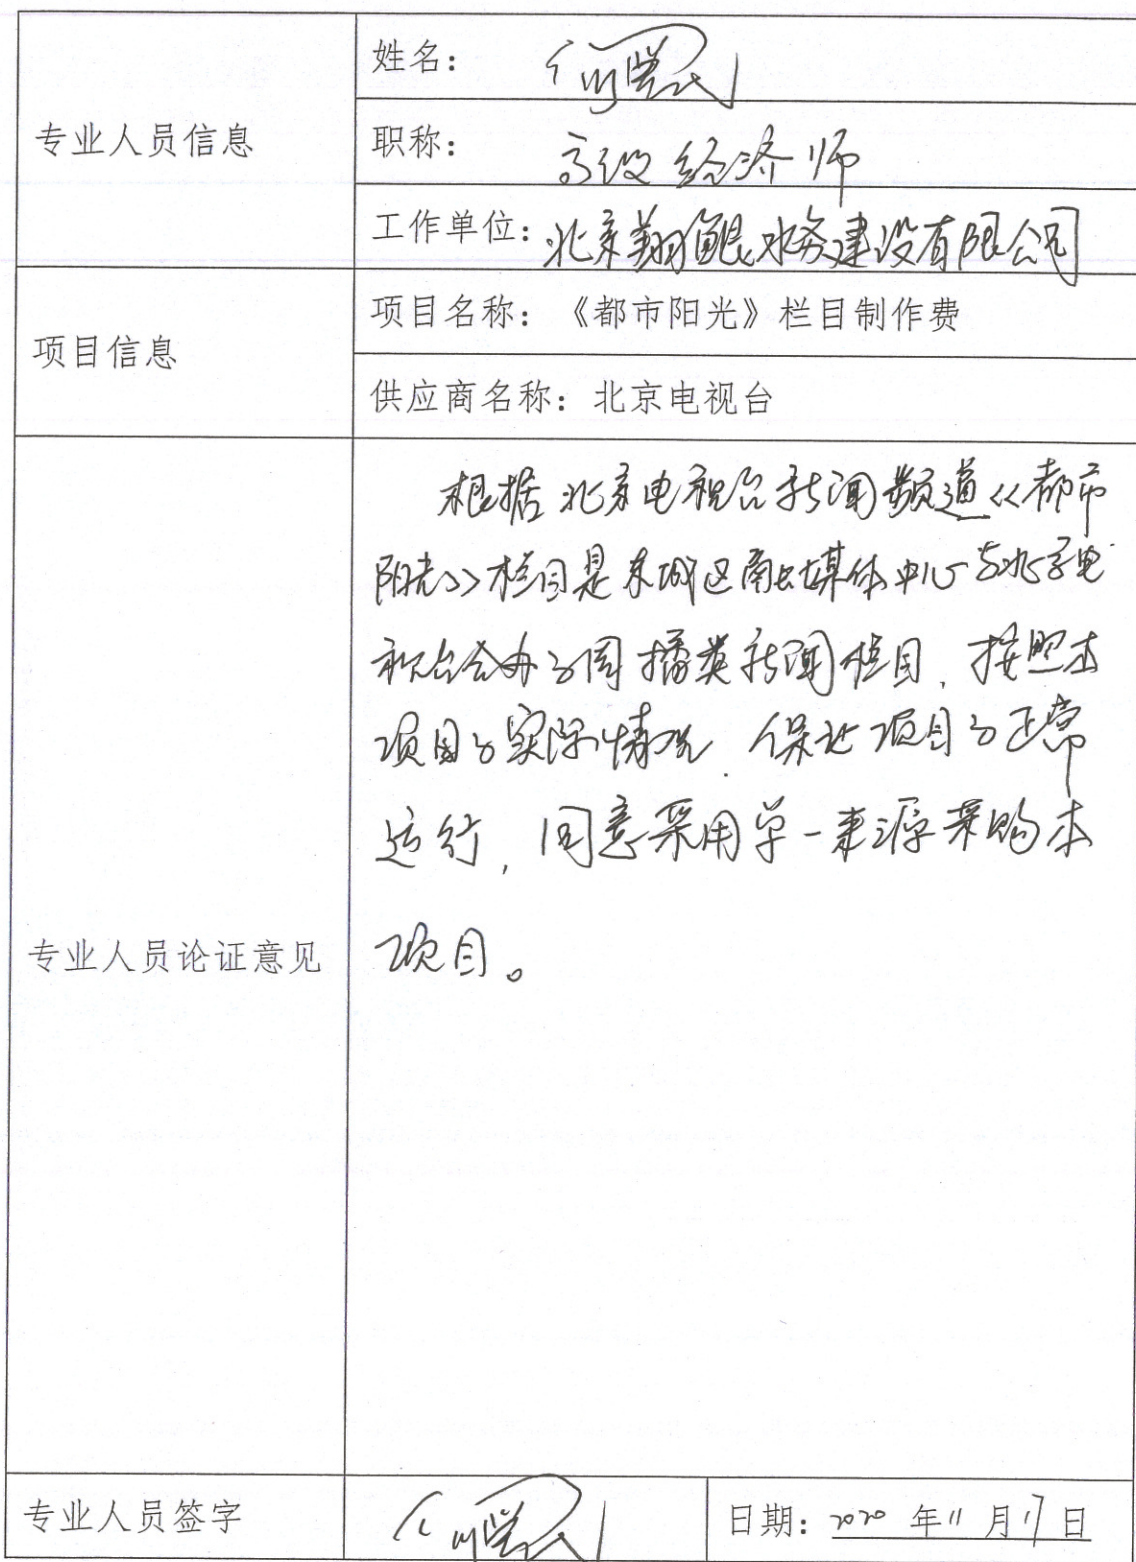 专业人员信息
姓名:
职称: 高级经济师
工作单位: 北京翔鲲水务建设有限公司
项目信息
项目名称: 《都市阳光》栏目制作费
供应商名称: 北京电视台
专业人员论证意见
根据北京电视台新闻频道《都市
阳光》栏目是东城区融媒体中心与北京电
视台合办的周播类新闻栏目,按照本
项目的实际情况,保证项目的正常
运行,同意采用单一来源采购本
项目。
专业人员签字
日期: 2020 年 11 月 17 日